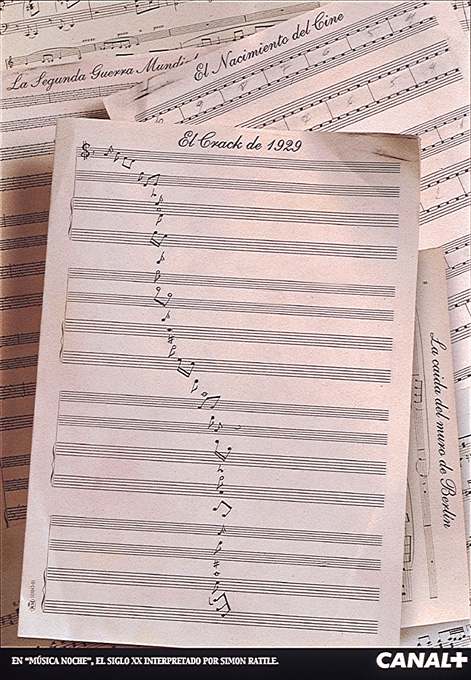 La Segunda Guerra Mundi
El Nacimiento del Cine
El Crack de 1929
$
La caida del muro de Berlín
EN “MÚSICA NOCHE”, EL SIGLO XX INTERPRETADO POR SIMON RATTLE.
CANAL+